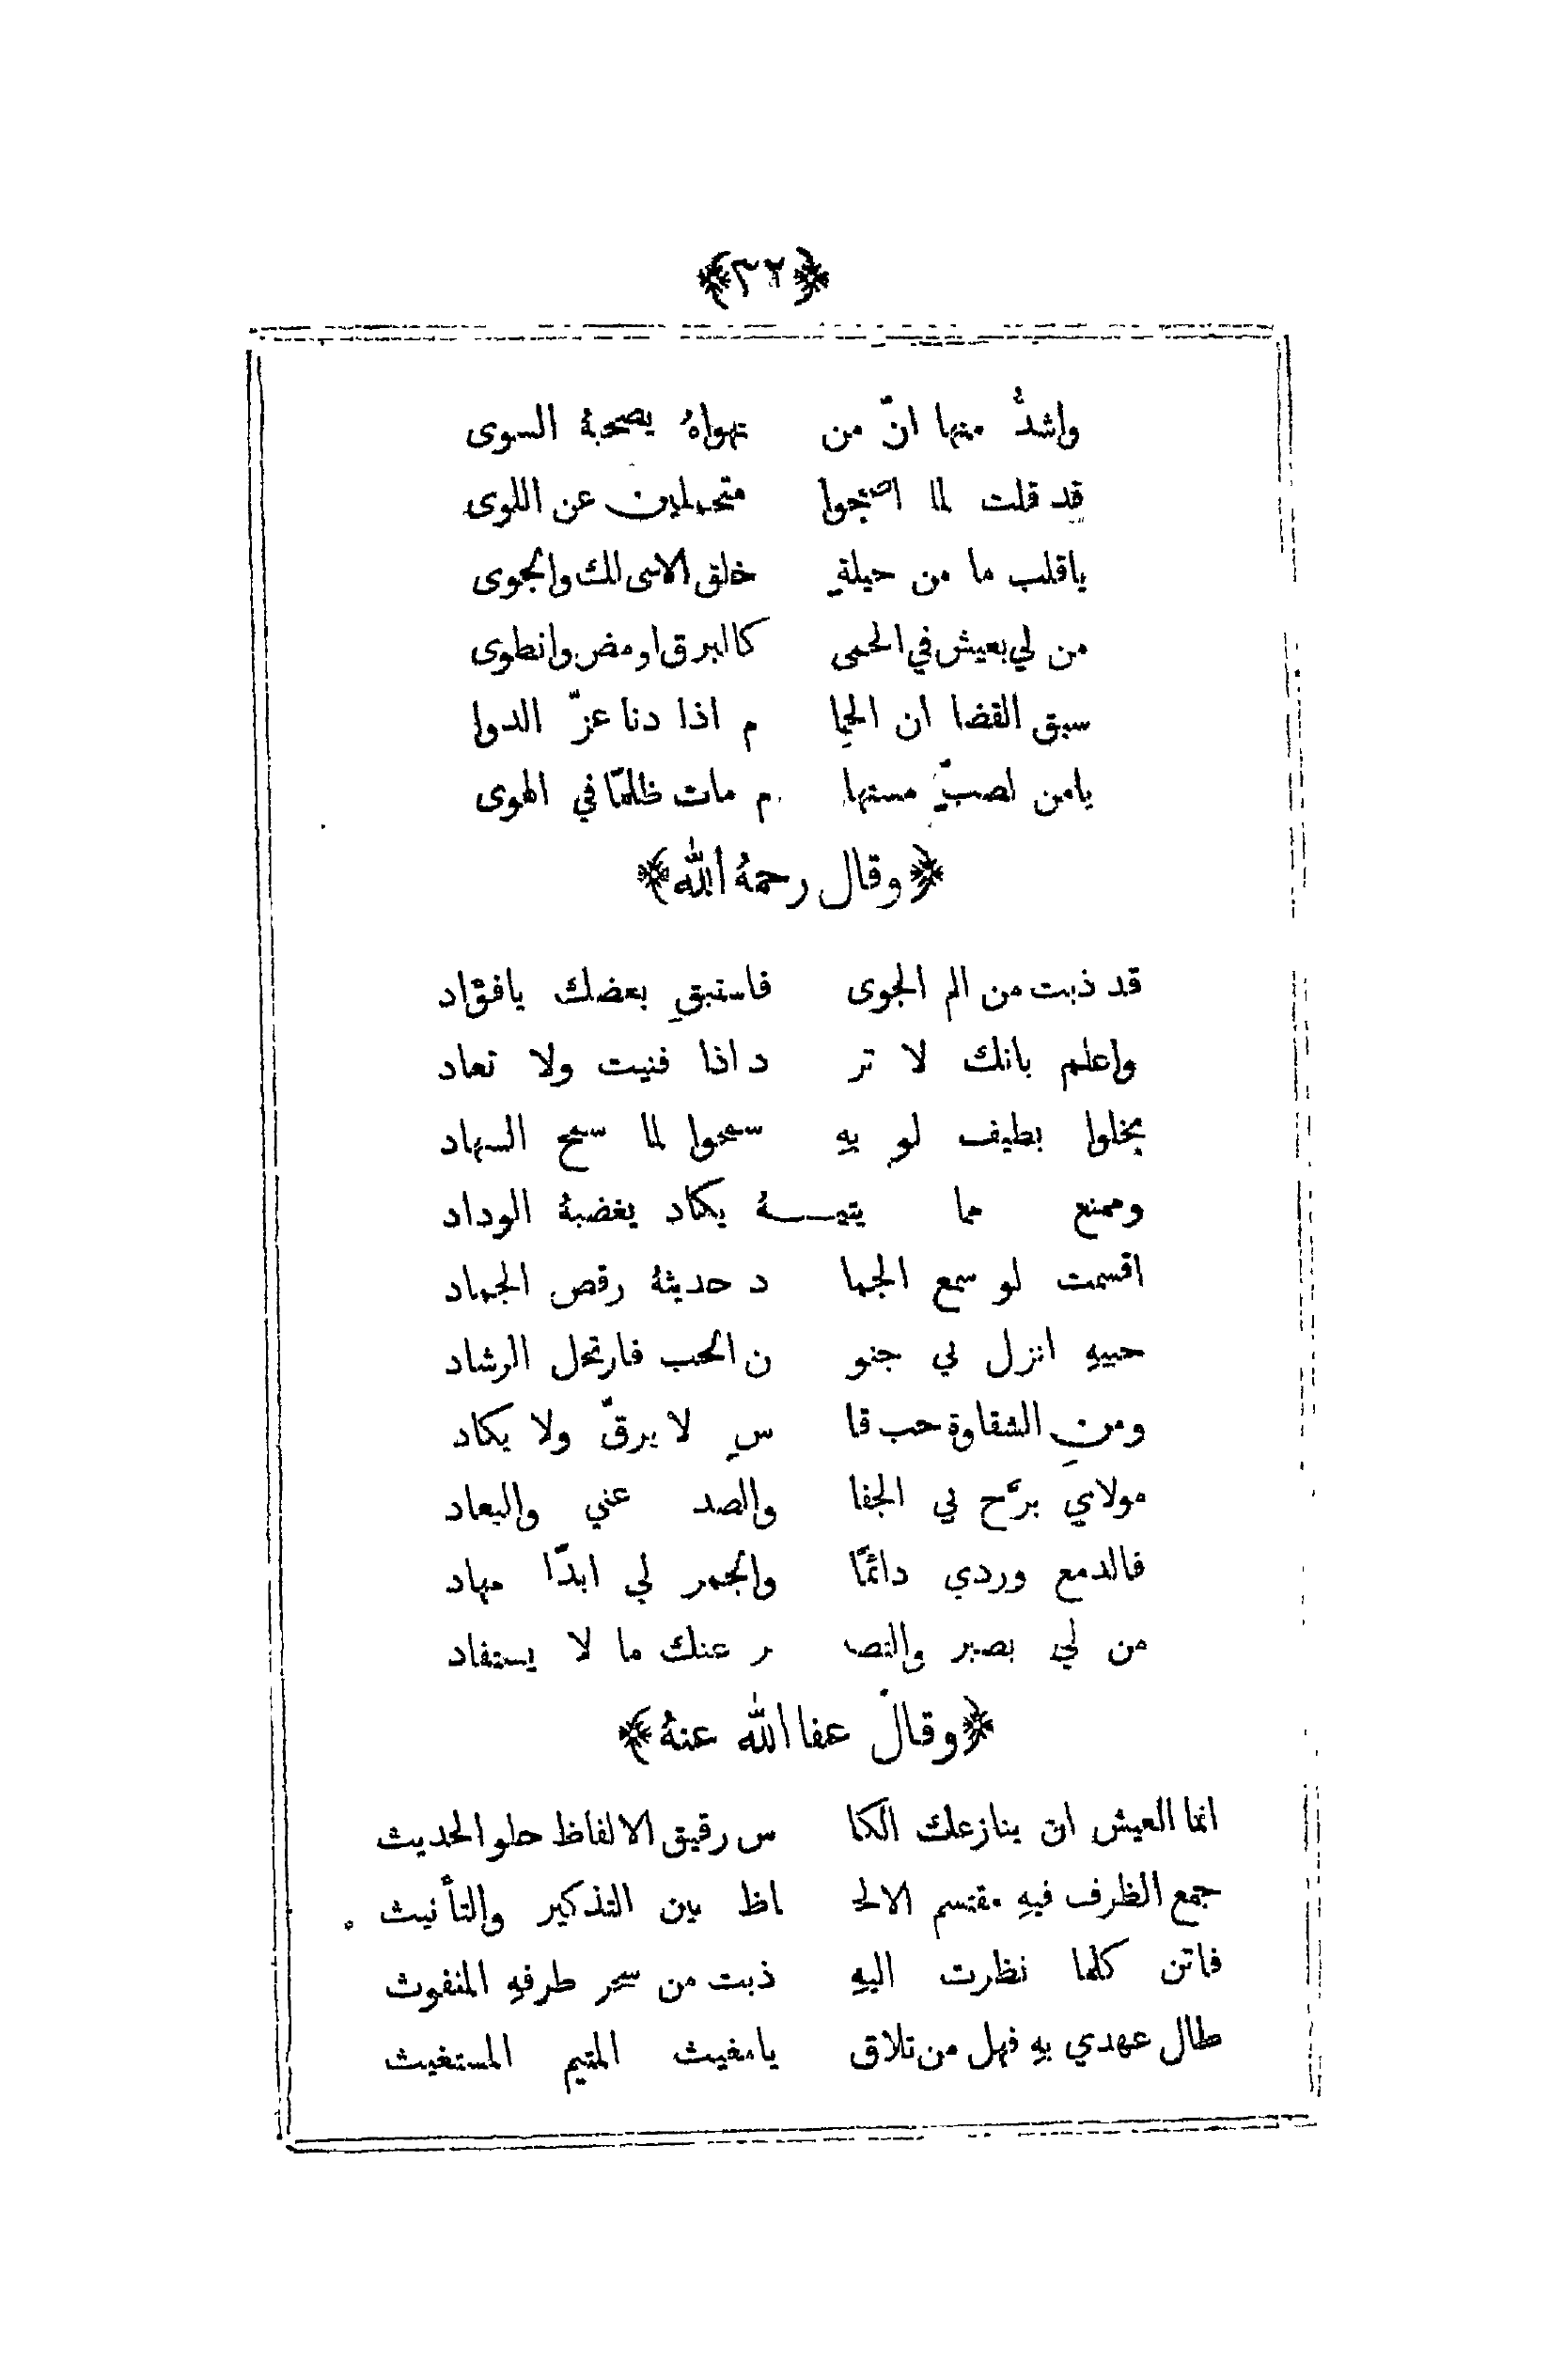 ﴿٣٢﴾
واشدُّ منها انّ من تهواهُ يصحبهُ السوى
قد قلت لما اصبحوا متحملين عن اللوى
ياقلب ما من حيلةٍ خلق الاسى لك والجوى
من لي بعيش في الحمى كالبرق اومض وانطوى
سبق القضا ان الحِما م اذا دنا عزّ الدوا
يامن لصبٍّ مستها م مات ظلمًا في الهوى
﴿وقال رحمهُ الله﴾
قد ذبت من الم الجوى فاستبقِ بعضك يافؤاد
واعلم بانك لا تر د اذا فنيت ولا تعاد
بخلوا بطيف لو بهِ سمحوا لما سمح السهاد
وممنع مما يتيمــهُ يكاد يغضبهُ الوداد
اقسمت لو سمع الجما د حديثهُ رقص الجماد
حبيهِ انزل بي جنو ن الحب فارتحل الرشاد
ومنِ الشقاوة حب قا سٍ لا يرقّ ولا يكاد
مولاي برَّح بي الجفا والصد عني والبعاد
فالدمع وردي دائمًا والجمر لي ابدًا مهاد
من لي بصبر والتصبـ ر عنك ما لا يستفاد
﴿وقال عفا الله عنهُ﴾
انما العيش ان ينازعك الكا س رقيق الالفاظ حلو الحديث
جمع الظرف فيهِ مقتسم الالحـ اظ بين التذكير والتأنيث
فاتن كلما نظرت اليهِ ذبت من سحر طرفهِ المنفوث
طال عهدي بهِ فهل من تلاق يامغيث المتيم المستغيث